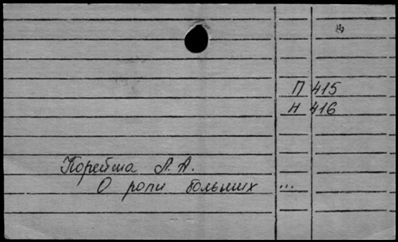 П 415
Н 416
Корейша Л. А.
О роли больших ...